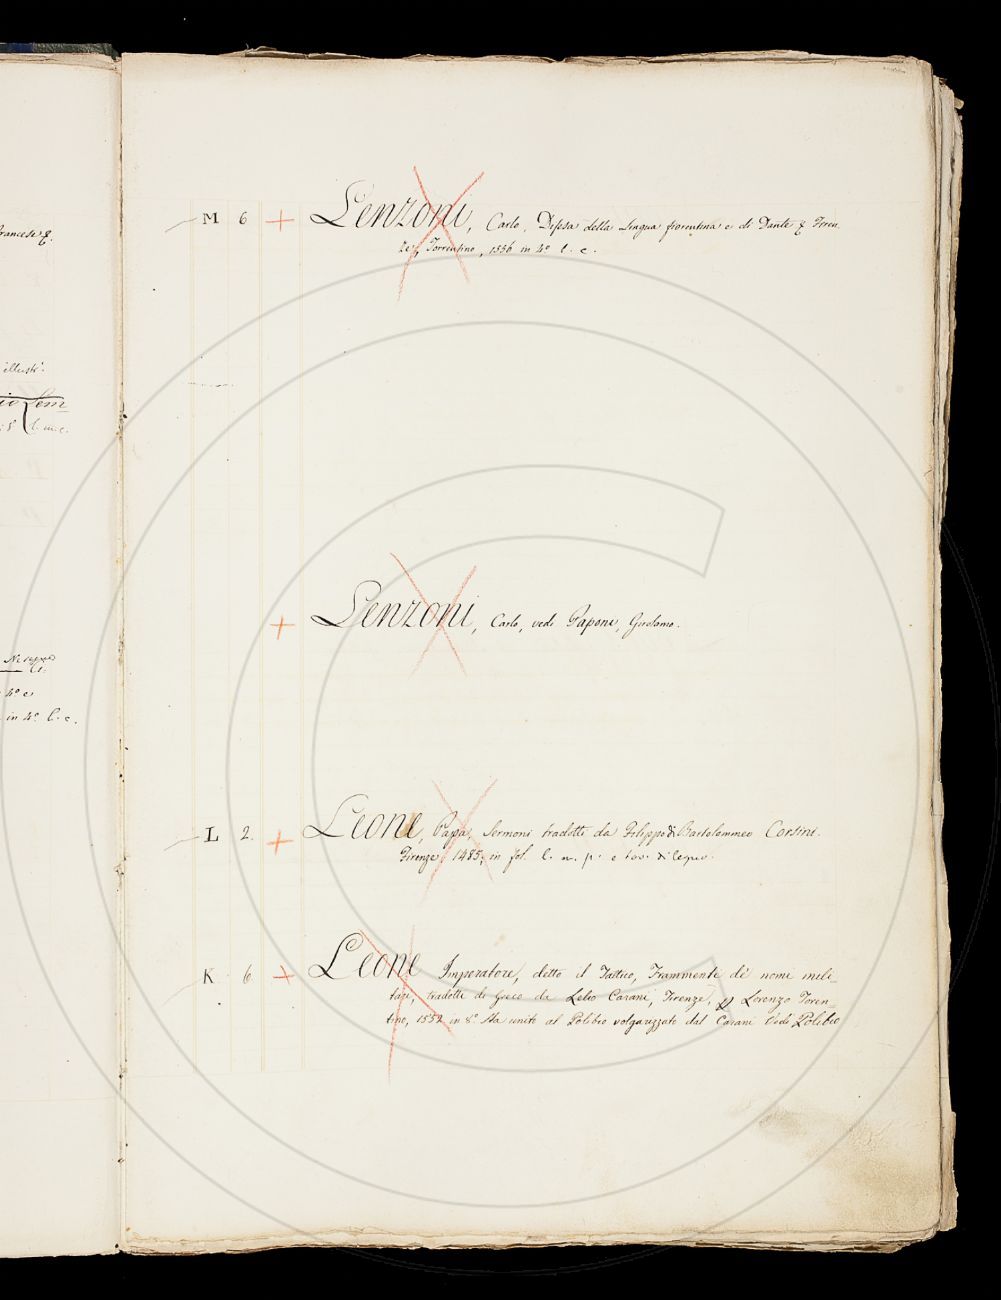 francese
illustr.
in 4º. l. c.
M 6 + Lenzoni, Carlo, Difesa della Lingua fiorentina e di Dante
Torrentino, 1556 in 4º l. c.
+ Lenzoni, Carlo, vedi Papone, Girolamo.
L 2. + Leone, Papa, Sermoni tradotti da Filippo di Bartolommeo Corsini.
Firenze 1485, in fol. l. m. p. e tav. di legno.
K 6 + Leone Imperatore, detto il Tattico, Frammenti de' nomi mili-
tari, tradotti di Greco da Lelio Carani, Firenze, Lorenzo Toren-
tino, 1552 in 8º Sta unito al Polibio volgarizzato dal Carani Vedi Polibio